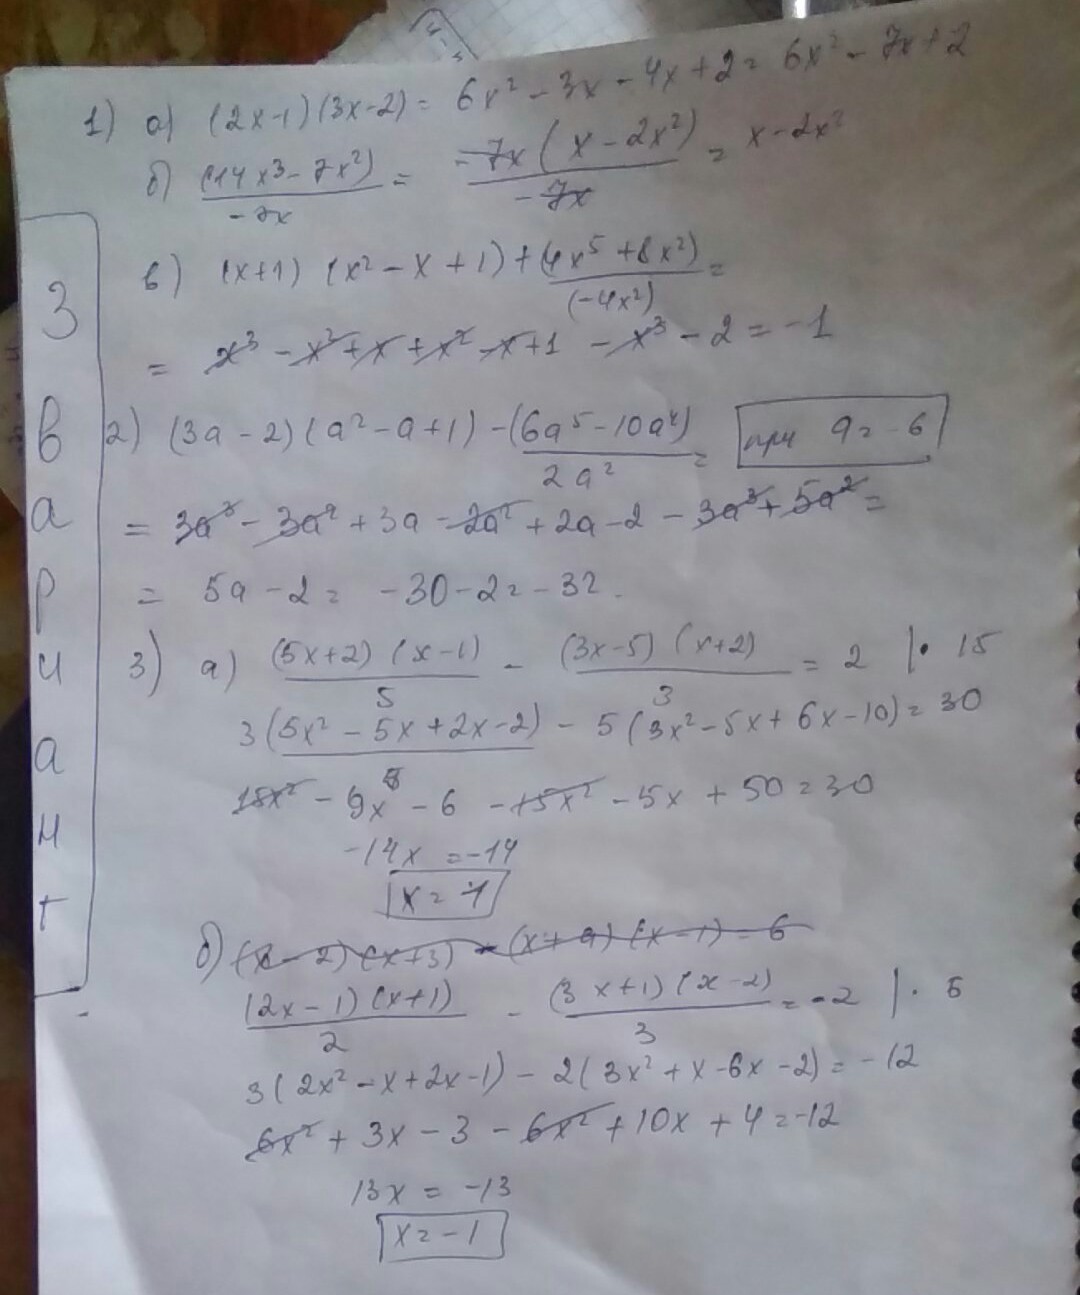 1) а) (2x-1)(3x-2) = 6x² - 3x - 4x + 2 = 6x² - 7x + 2
б) (14x³ - 7x²) / -7x = -7x(x - 2x²) / -7x = x - 2x²
в) (x+1)(x² - x + 1) + (4x⁵ + 8x²) / (-4x²) =
= x³ - x² + x + x² - x + 1 - x³ - 2 = -1
2) (3a - 2)(a² - a + 1) - (6a⁵ - 10a⁴) / 2a² = при a = -6
= 3a³ - 3a² + 3a - 2a² + 2a - 2 - 3a³ + 5a² =
= 5a - 2 = -30 - 2 = -32.
3) а) (5x+2)(x-1) / 5 - (3x-5)(x+2) / 3 = 2 |· 15
3(5x² - 5x + 2x - 2) - 5(3x² - 5x + 6x - 10) = 30
15x² - 9x - 6 - 15x² - 5x + 50 = 30
-14x = -14
x = 1
б) (x - 2)(x+3) - (x+4)(x-1) = 6
(2x - 1)(x+1) / 2 - (3x+1)(x-2) / 3 = -2 |· 6
3(2x² - x + 2x - 1) - 2(3x² + x - 6x - 2) = -12
6x² + 3x - 3 - 6x² + 10x + 4 = -12
13x = -13
x = -1
3
в
а
р
и
а
н
т